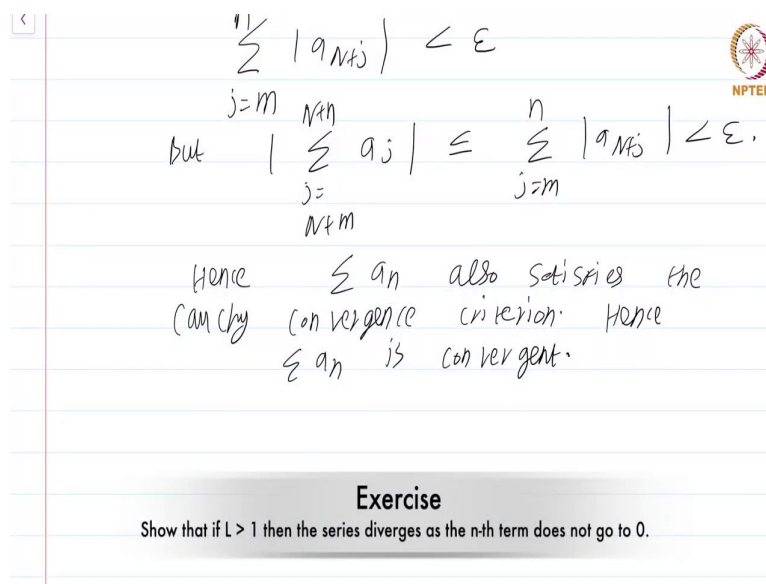 n
Σ |a_{N+j}| < ε
j=m
NPTEL
But | Σ_{j=N+m}^{N+n} a_j | ≤ Σ_{j=m}^{n} |a_{N+j}| < ε.
Hence Σ a_n also satisfies the
Cauchy convergence criterion. Hence
Σ a_n is convergent.
Exercise
Show that if L > 1 then the series diverges as the n-th term does not go to 0.